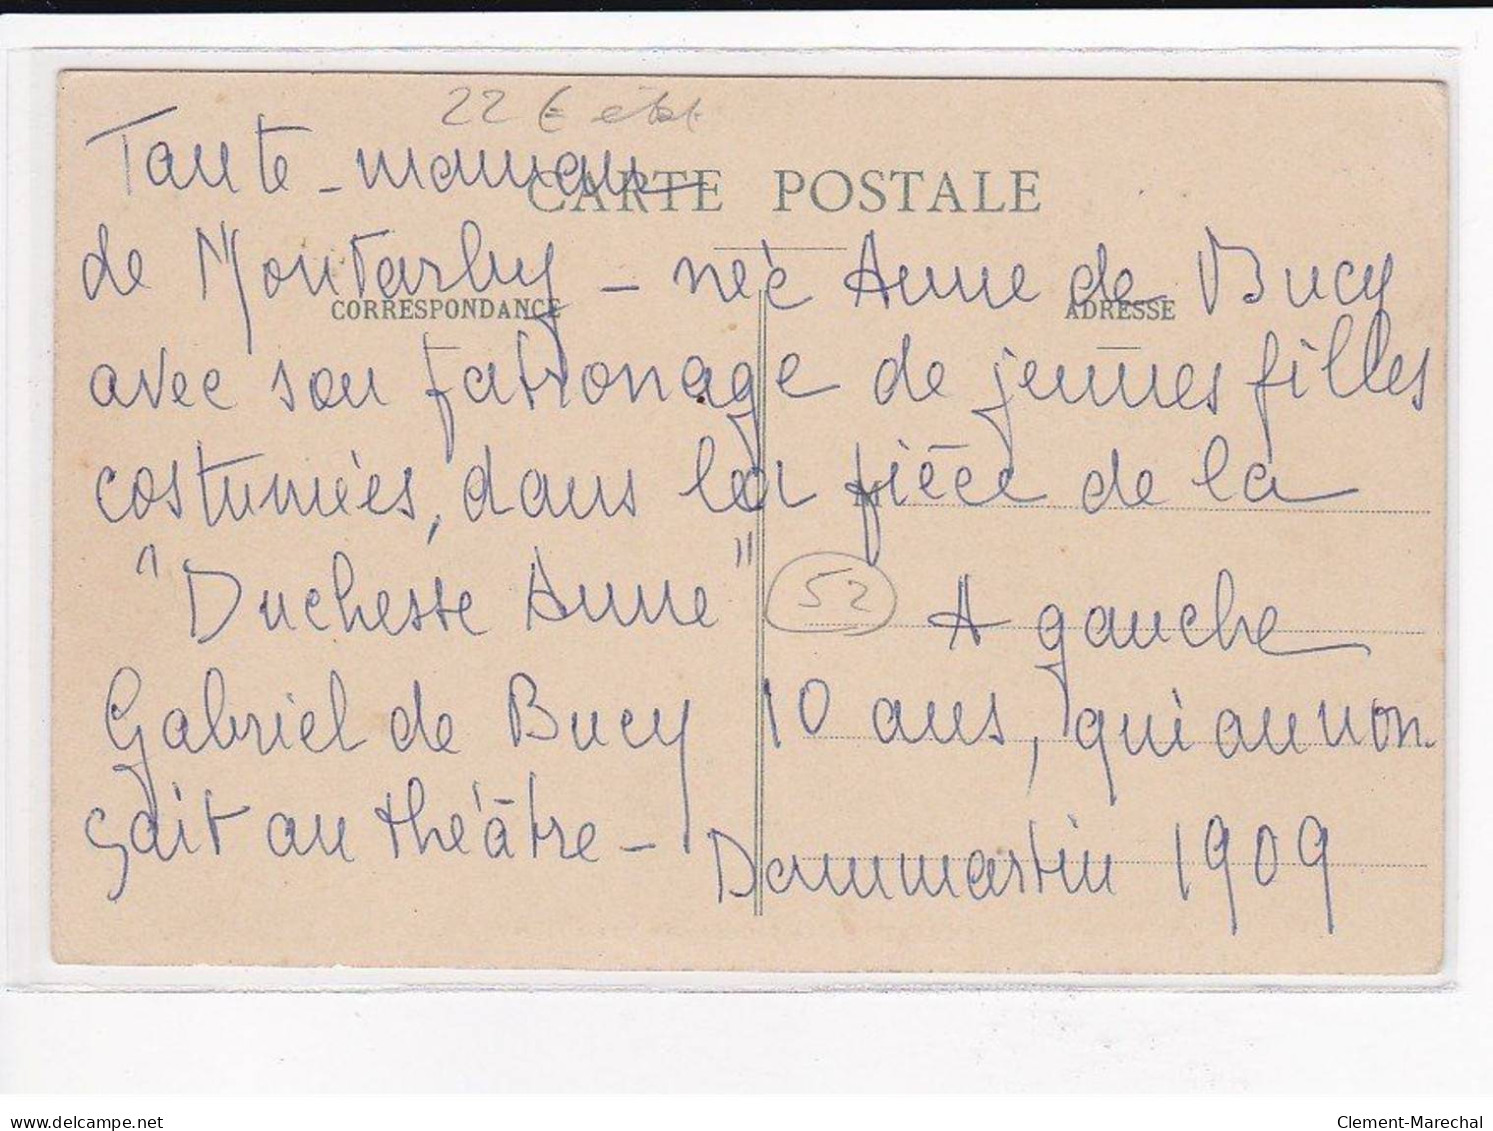 22 €
Tante-maman
CARTE POSTALE
de Montarby - née Anne de Bucy
CORRESPONDANCE
ADRESSE
avec son patronage de jeunes filles
costumées, dans la pièce de la
"Duchesse Anne"
52
A gauche
Gabriel de Bucy 10 ans, qui annon-
çait au théâtre -
Dammartin 1909
delcampe.net
Clement-Marechal